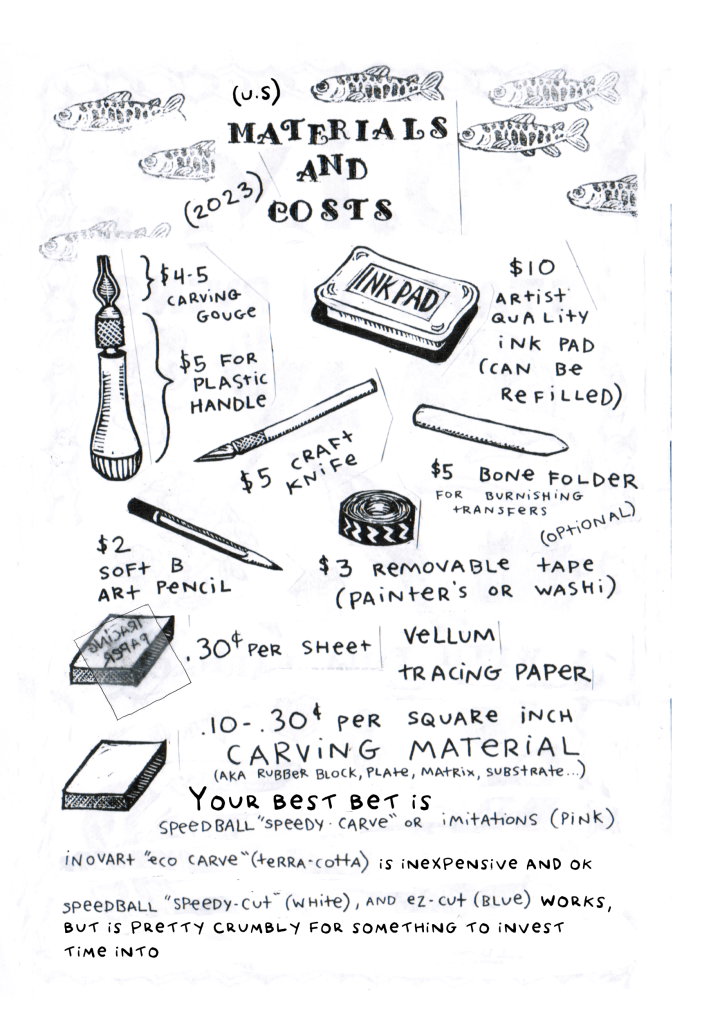 (U.S)
MATERIALS
AND
(2023) COSTS
$4-5
CARVING
GOUGE
$5 FOR
PLASTIC
HANDLE
INK PAD
$10
ARTIST
QUALITY
INK PAD
(CAN BE
REFILLED)
$5 CRAFT
KNIFE
$5 BONE FOLDER
FOR BURNISHING
TRANSFERS
(OPTIONAL)
$2
SOFT B
ART PENCIL
$3 REMOVABLE TAPE
(PAINTER'S OR WASHI)
TRACING
PAPER
.30¢ PER SHEET
VELLUM
TRACING PAPER
.10-.30¢ PER SQUARE INCH
CARVING MATERIAL
(AKA RUBBER BLOCK, PLATE, MATRIX, SUBSTRATE...)
YOUR BEST BET IS
SPEEDBALL "SPEEDY-CARVE" OR IMITATIONS (PINK)
INOVART "ECO CARVE" (TERRA-COTTA) IS INEXPENSIVE AND OK
SPEEDBALL "SPEEDY-CUT" (WHITE), AND EZ-CUT (BLUE) WORKS,
BUT IS PRETTY CRUMBLY FOR SOMETHING TO INVEST
TIME INTO